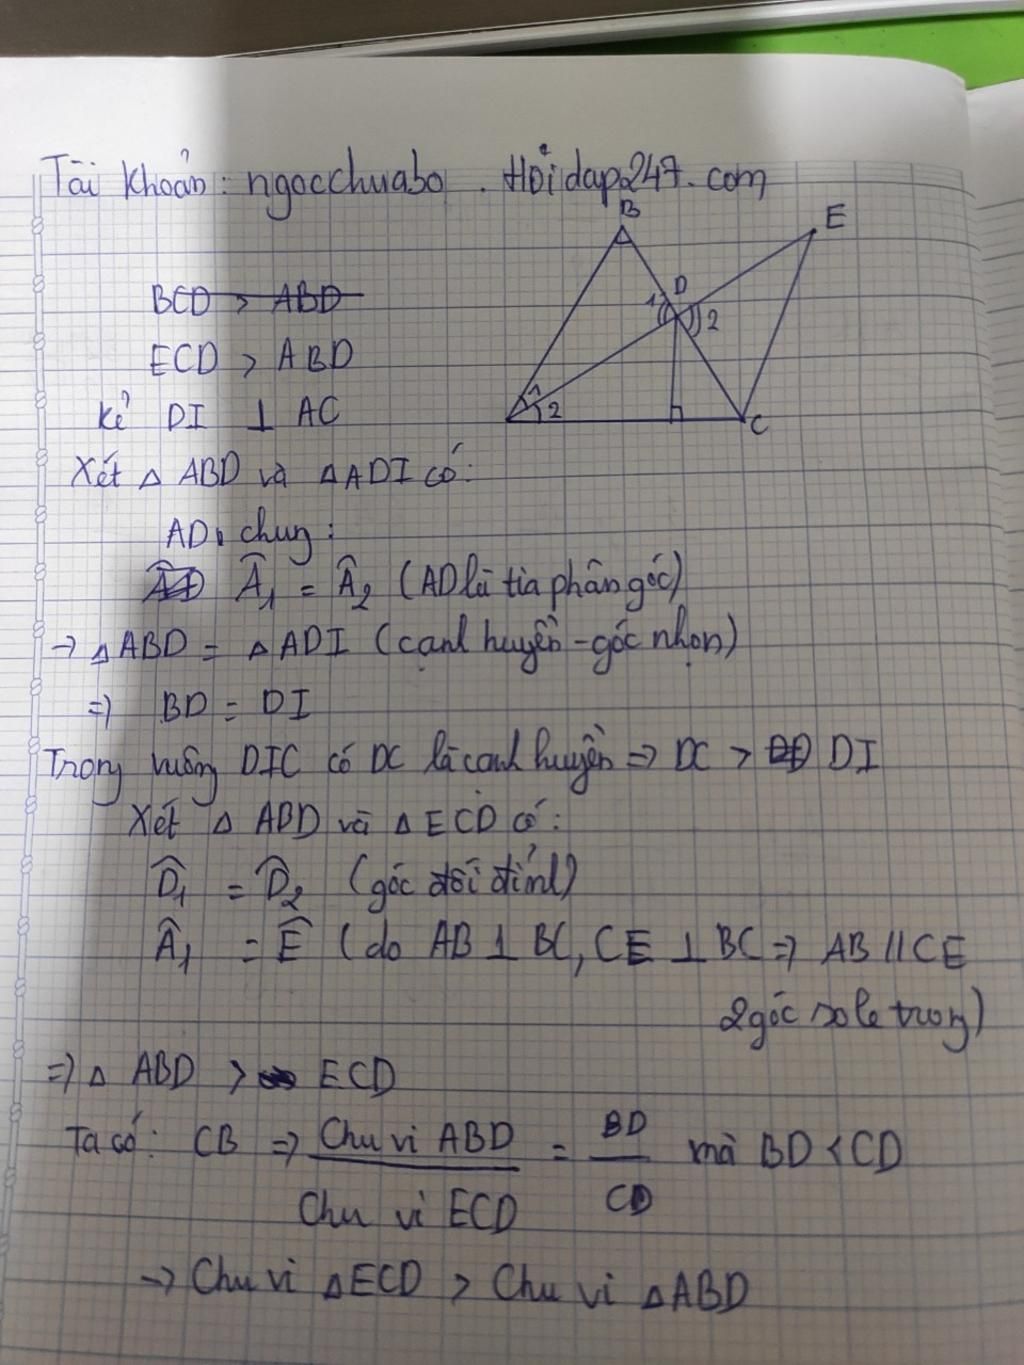 Tài khoản: ngocchuabo. Hỏidap247.com
B
E
BCD > ABD
D
1
2
ECD > ABD
1
2
Kẻ DI ⊥ AC
C
Xét △ ABD và △ ADI có:
AD chung:
Â₁ = Â₂ (AD là tia phân góc)
→ △ ABD = △ ADI (cạnh huyền - góc nhọn)
⇒ BD = DI
Trong vuông DIC có DC là cạnh huyền ⇒ DC > DI
Xét △ ABD và △ ECD có:
D̂₁ = D̂₂ (góc đối đỉnh)
Â₁ = Ê (do AB ⊥ BC, CE ⊥ BC ⇒ AB // CE
2 góc so le trong)
⇒ △ ABD > ECD
Ta có: CB ⇒ Chu vi ABD = BD mà BD < CD
Chu vi ECD CD
→ Chu vi △ECD > Chu vi △ABD